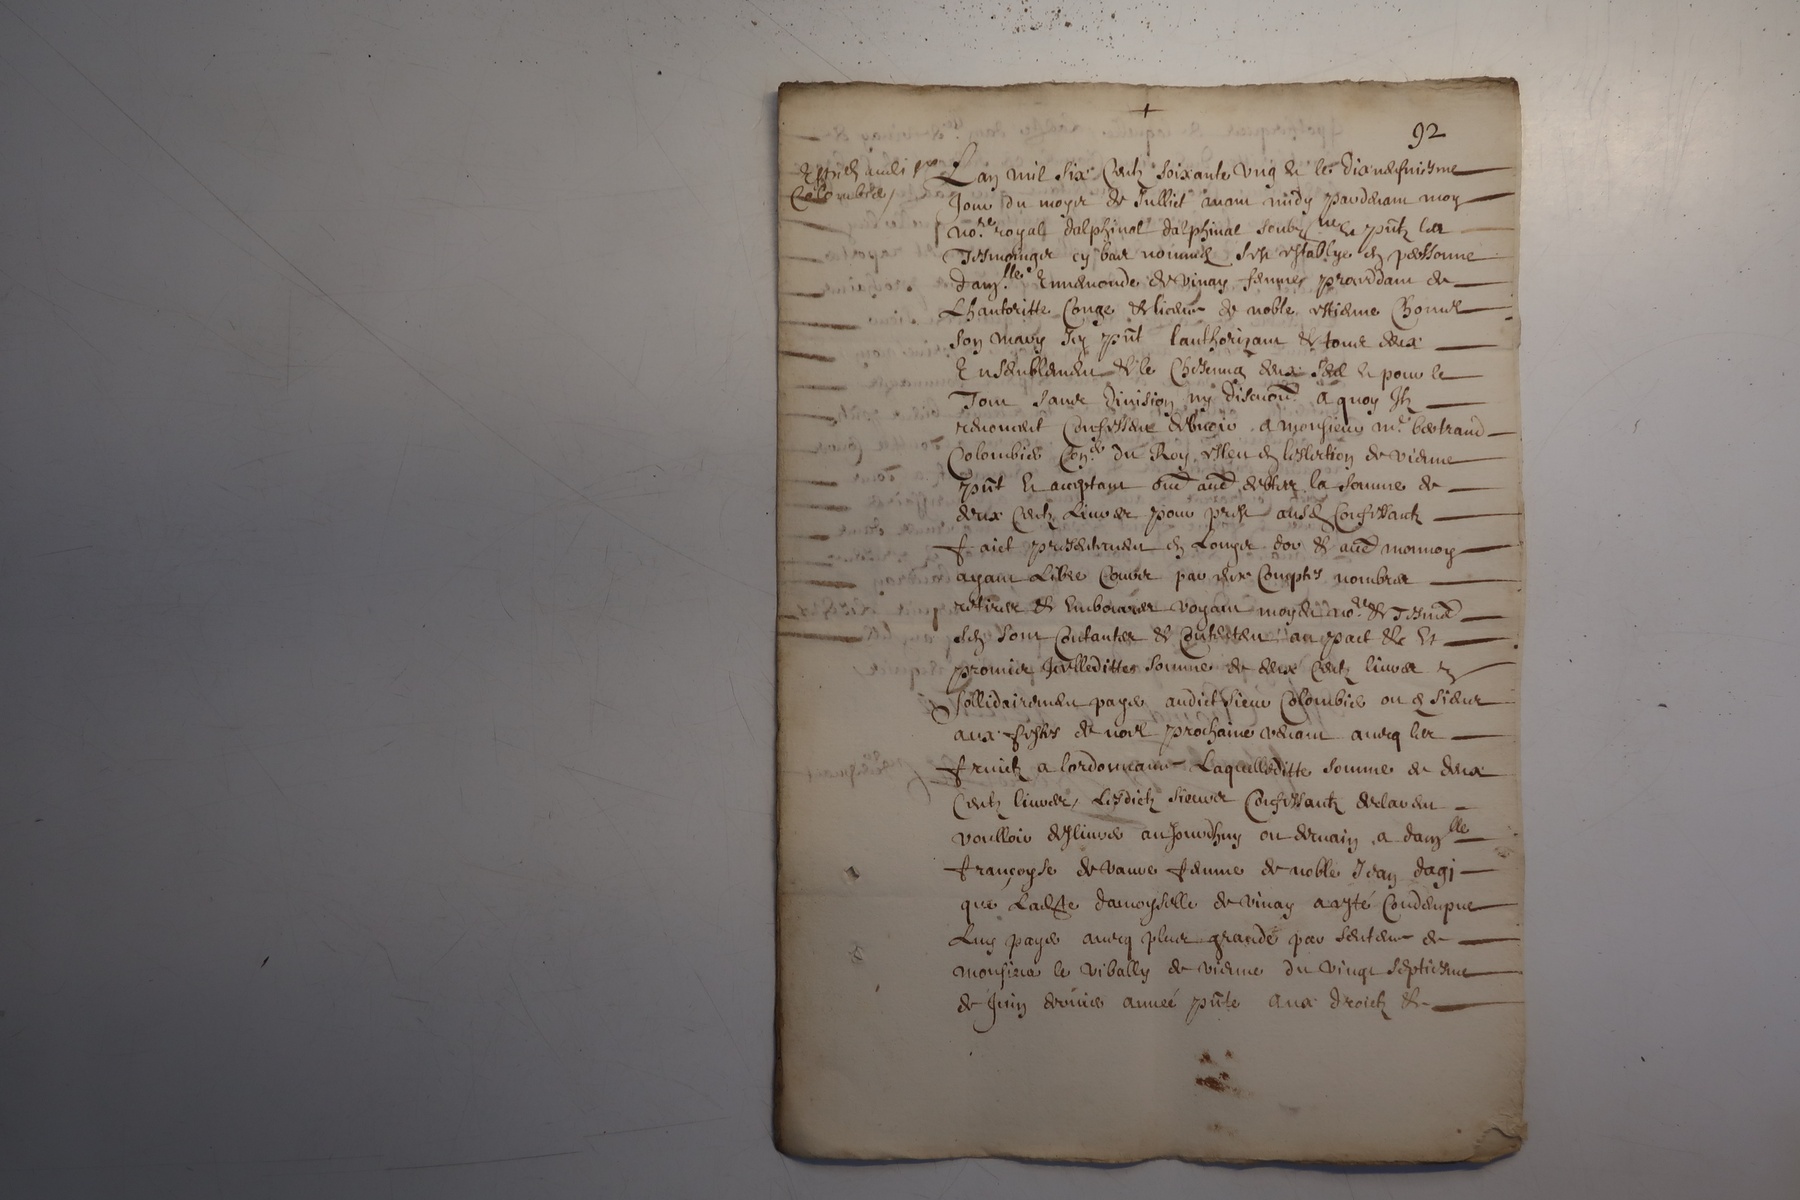 92
Colombier
Lan mil six centz soixante ung & le dixneufviesme
Jour du moys de Julliet avant midy pardevant moy
no.re royal dalphinal soubz.né p̃ntz les
Tesmoings cy bas nommés s'est establye en personne
dam.lle Ennemonde de Vinay femme procedant de
Lhautoritte Conge & licence de noble estienne
son mary Icy p̃nt lauthorizant & tous deux
Ensemblement & le Chescung deux seul & pour le
Tout sans division ny discution a quoy Ilz
renoncent Confessent debvoir a monsieur m.e bertrand
Colombier Con.er du Roy esleu en leslection de vienne
p̃nt & acceptant la somme de
deux centz Livres pour prest ausd Confessantz
faict presentement en Louys dor & aud monnoy
ayant Libre Cours par eux Comptés nombrés
retirés & Emboursés voyant moyd no.re & Tesmoins
sen sont Contantés &
promis Jcelleditte somme de deux centz livres
sollidairement payer audict sieur Colombier ou es siens
aux festes de noel prochains venant avecq les
fruictz a lordonnance Laquelleditte somme de deux
Centz livres, Lesdictz sieurs Confessantz declarent
voulloir deslivrer au Jourdhuy ou demain a dam.lle
françoyse de vaux femme de noble Jean dagi
que Laditte damoyselle de Vinay a esté Condempnee
Luy payer avecq plus grande par sentence de
monsieur le vibally de vienne du vingt septiesme
de Juin dernier année p̃nte aux droictz &